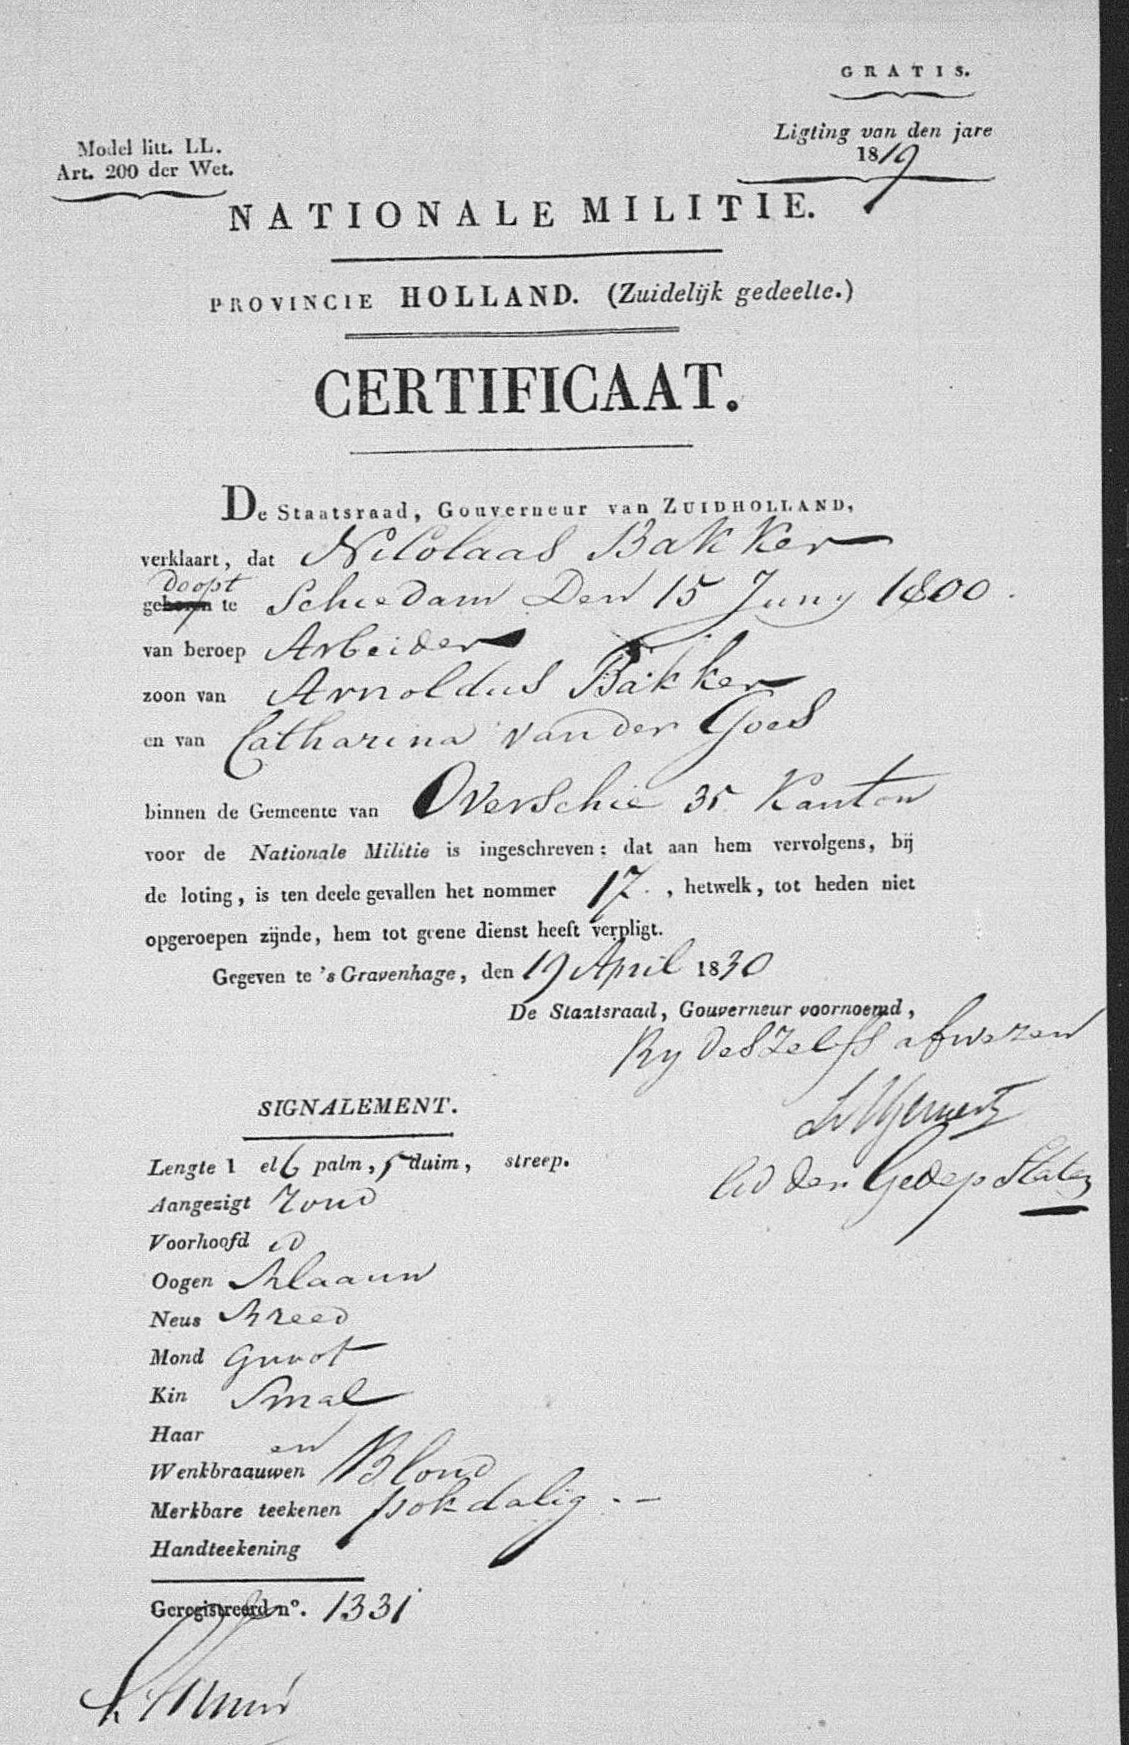 GRATIS.
Ligting van den jare
1819
Model litt. LL.
Art. 200 der Wet.
NATIONALE MILITIE.
PROVINCIE HOLLAND. (Zuidelijk gedeelte.)
CERTIFICAAT.
De Staatsraad, Gouverneur van ZUIDHOLLAND,
verklaart, dat Nicolaas Bakker
doopt
geboren te Schiedam Den 15 Juny 1800.
van beroep Arbeider
zoon van Arnoldus Bakker
en van Catharina van der Goes
binnen de Gemeente van Overschie 35 Kanton
voor de Nationale Militie is ingeschreven; dat aan hem vervolgens, bij
de loting, is ten deele gevallen het nommer 17. , hetwelk, tot heden niet
opgeroepen zijnde, hem tot geene dienst heeft verpligt.
Gegeven te 's Gravenhage, den 19 April 1830
De Staatsraad, Gouverneur voornoemd,
By deszelfs afwezen
Lid der Gedep Staten
SIGNALEMENT.
Lengte 1 el 6 palm, 5 duim, streep.
Aangezigt rond
Voorhoofd id
Oogen Blaauw
Neus Breed
Mond groot
Kin Smal
Haar en
Wenkbraauwen Blond
Merkbare teekenen pokdalig. -
Handteekening
Geregistreerd nº. 1331